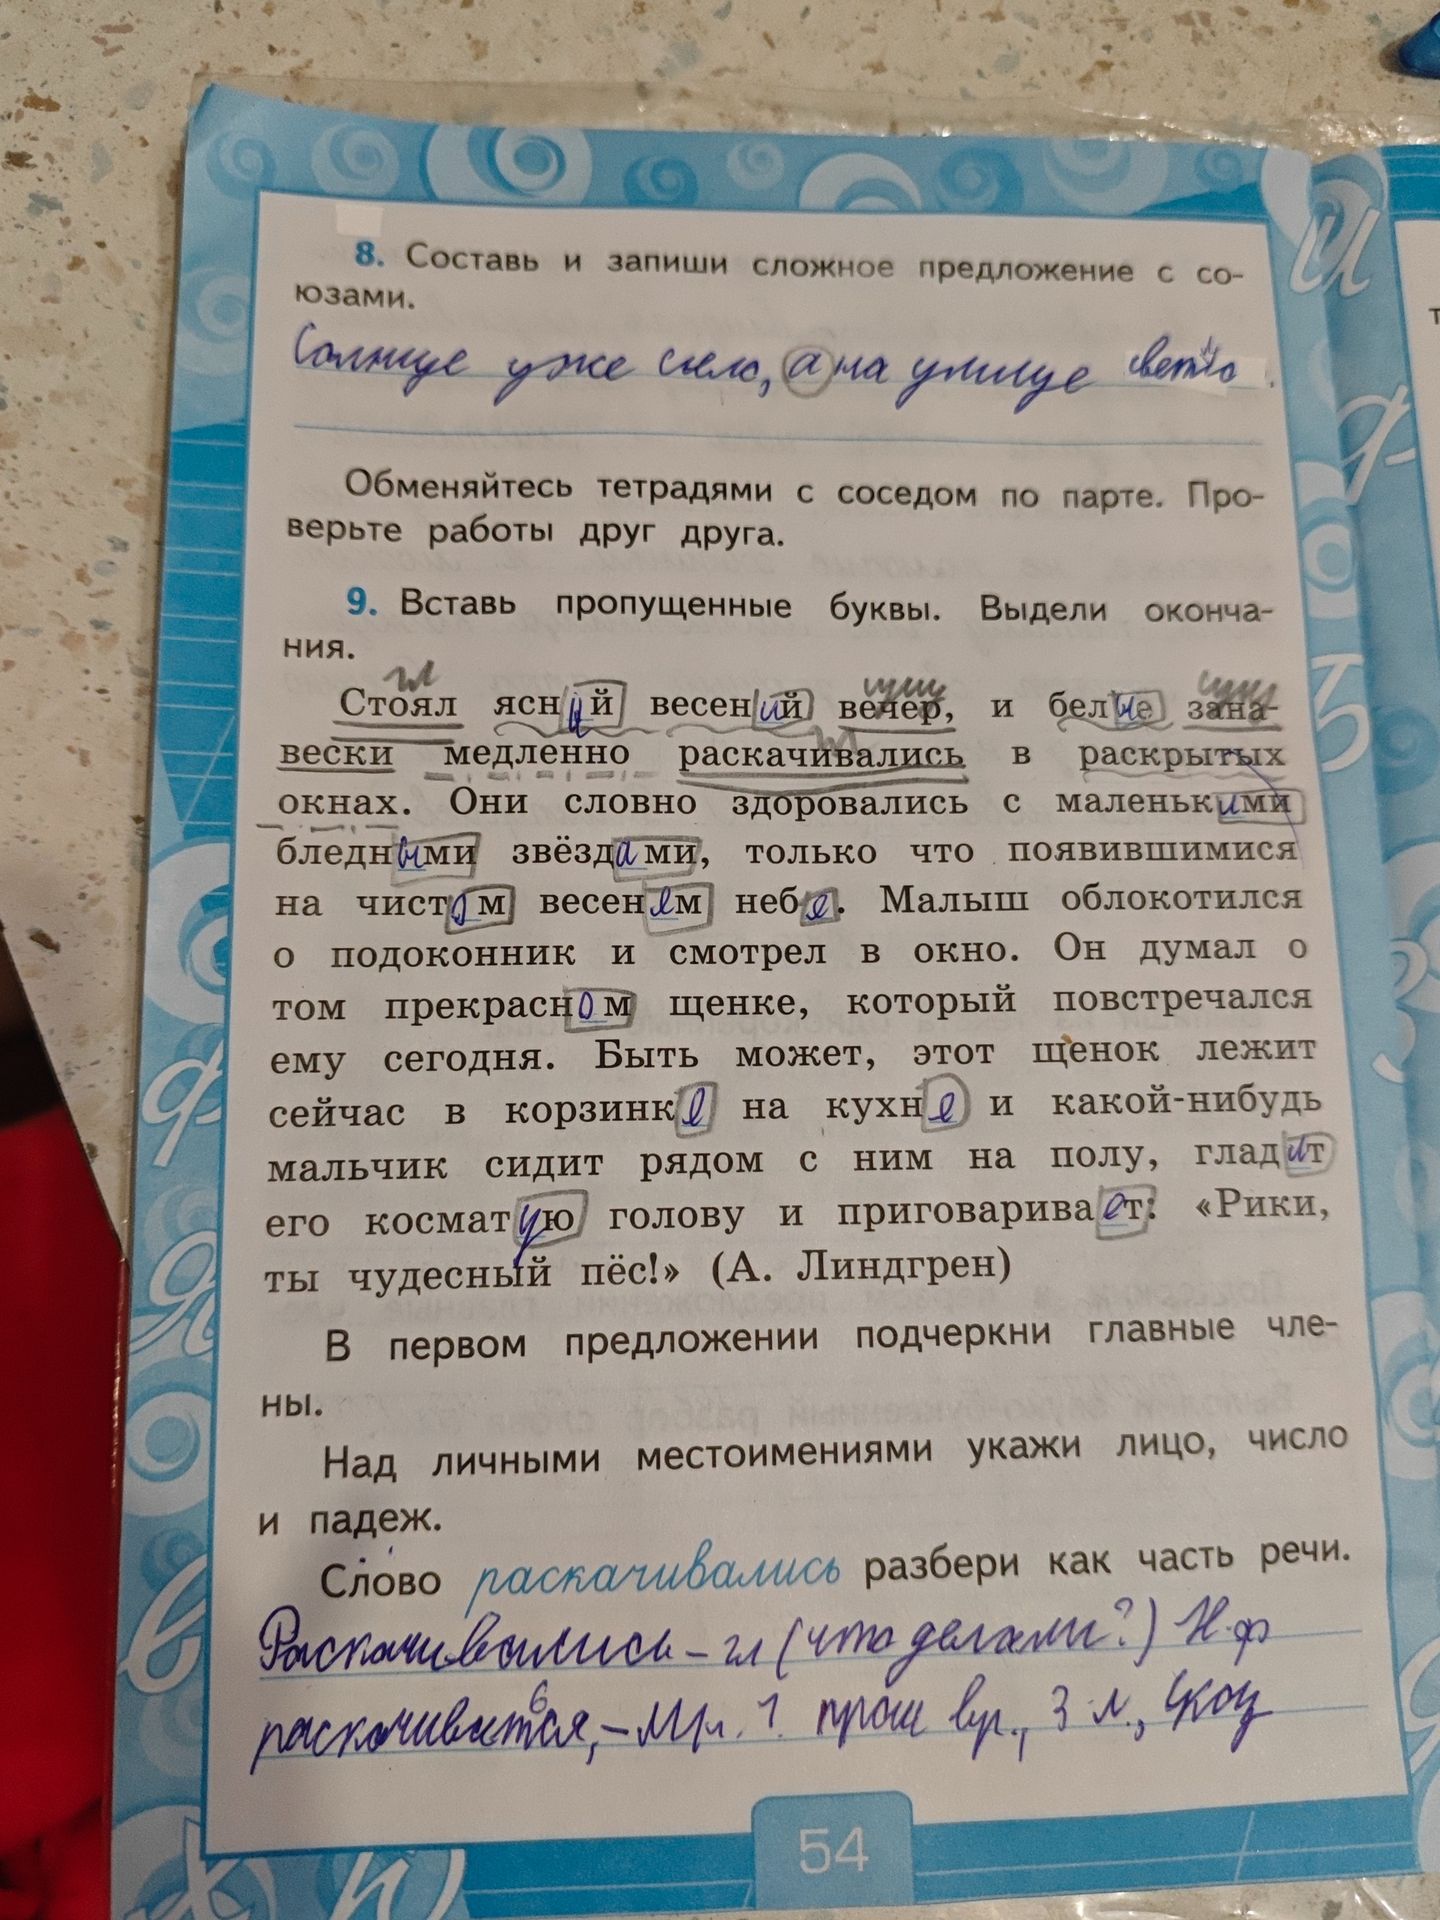 8. Составь и запиши сложное предложение с со-
юзами.
Солнце уже село, а на улице светло.
Обменяйтесь тетрадями с соседом по парте. Про-
верьте работы друг друга.
9. Вставь пропущенные буквы. Выдели оконча-
ния.
гл сущ сущ
Стоял ясный весений вечер, и белые зана-
гл
вески медленно раскачивались в раскрытых
окнах. Они словно здоровались с маленькими
бледными звёздами, только что появившимися
на чистом весенем небе. Малыш облокотился
о подоконник и смотрел в окно. Он думал о
том прекрасном щенке, который повстречался
ему сегодня. Быть может, этот щенок лежит
сейчас в корзинке на кухне и какой-нибудь
мальчик сидит рядом с ним на полу, гладит
его косматую голову и приговаривает: «Рики,
ты чудесный пёс!» (А. Линдгрен)
В первом предложении подчеркни главные чле-
ны.
Над личными местоимениями укажи лицо, число
и падеж.
Слово раскачивались разбери как часть речи.
Раскачивались – гл (что делали?) Н.ф
раскачиваться, – Мн. ч. прош вр., 3 л.,
54